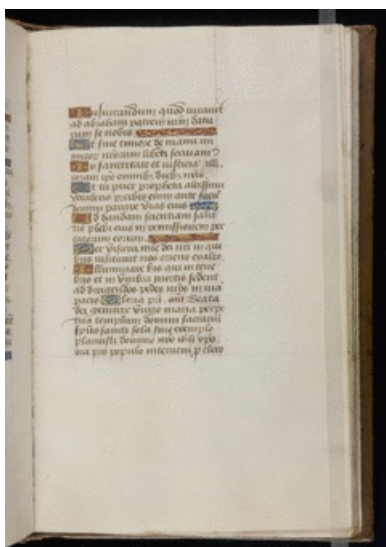 Iusiurandum quod iuravit
ad abraham patrem nrm datu
rum se nobis
Ut sine timore de manu ini
micor nostrorum liberati serviam9
In sanctitate et iusticia
coram ipo omnibz diebz nris
Et tu puer propheta altissimi
vocaberis preibis enim ante faciē
domini parare vias eius
Ad dandam scientiam salu
tis plebi eius in remissionem pec
catorum eorum
Per viscera mie dei nri in qui
bus visitavit nos oriens ex alto
Illuminare his qui in tene
bris et in umbra mortis sedent
ad dirigendos pedes nros in via
pacis Gloria pri añ Beata
dei genitrix virgo maria perpe
tua templum domini sacrariū
spūs sancti sola sine exemplo
placuisti domino nro ihū xpo
ora pro populo interveni p clero